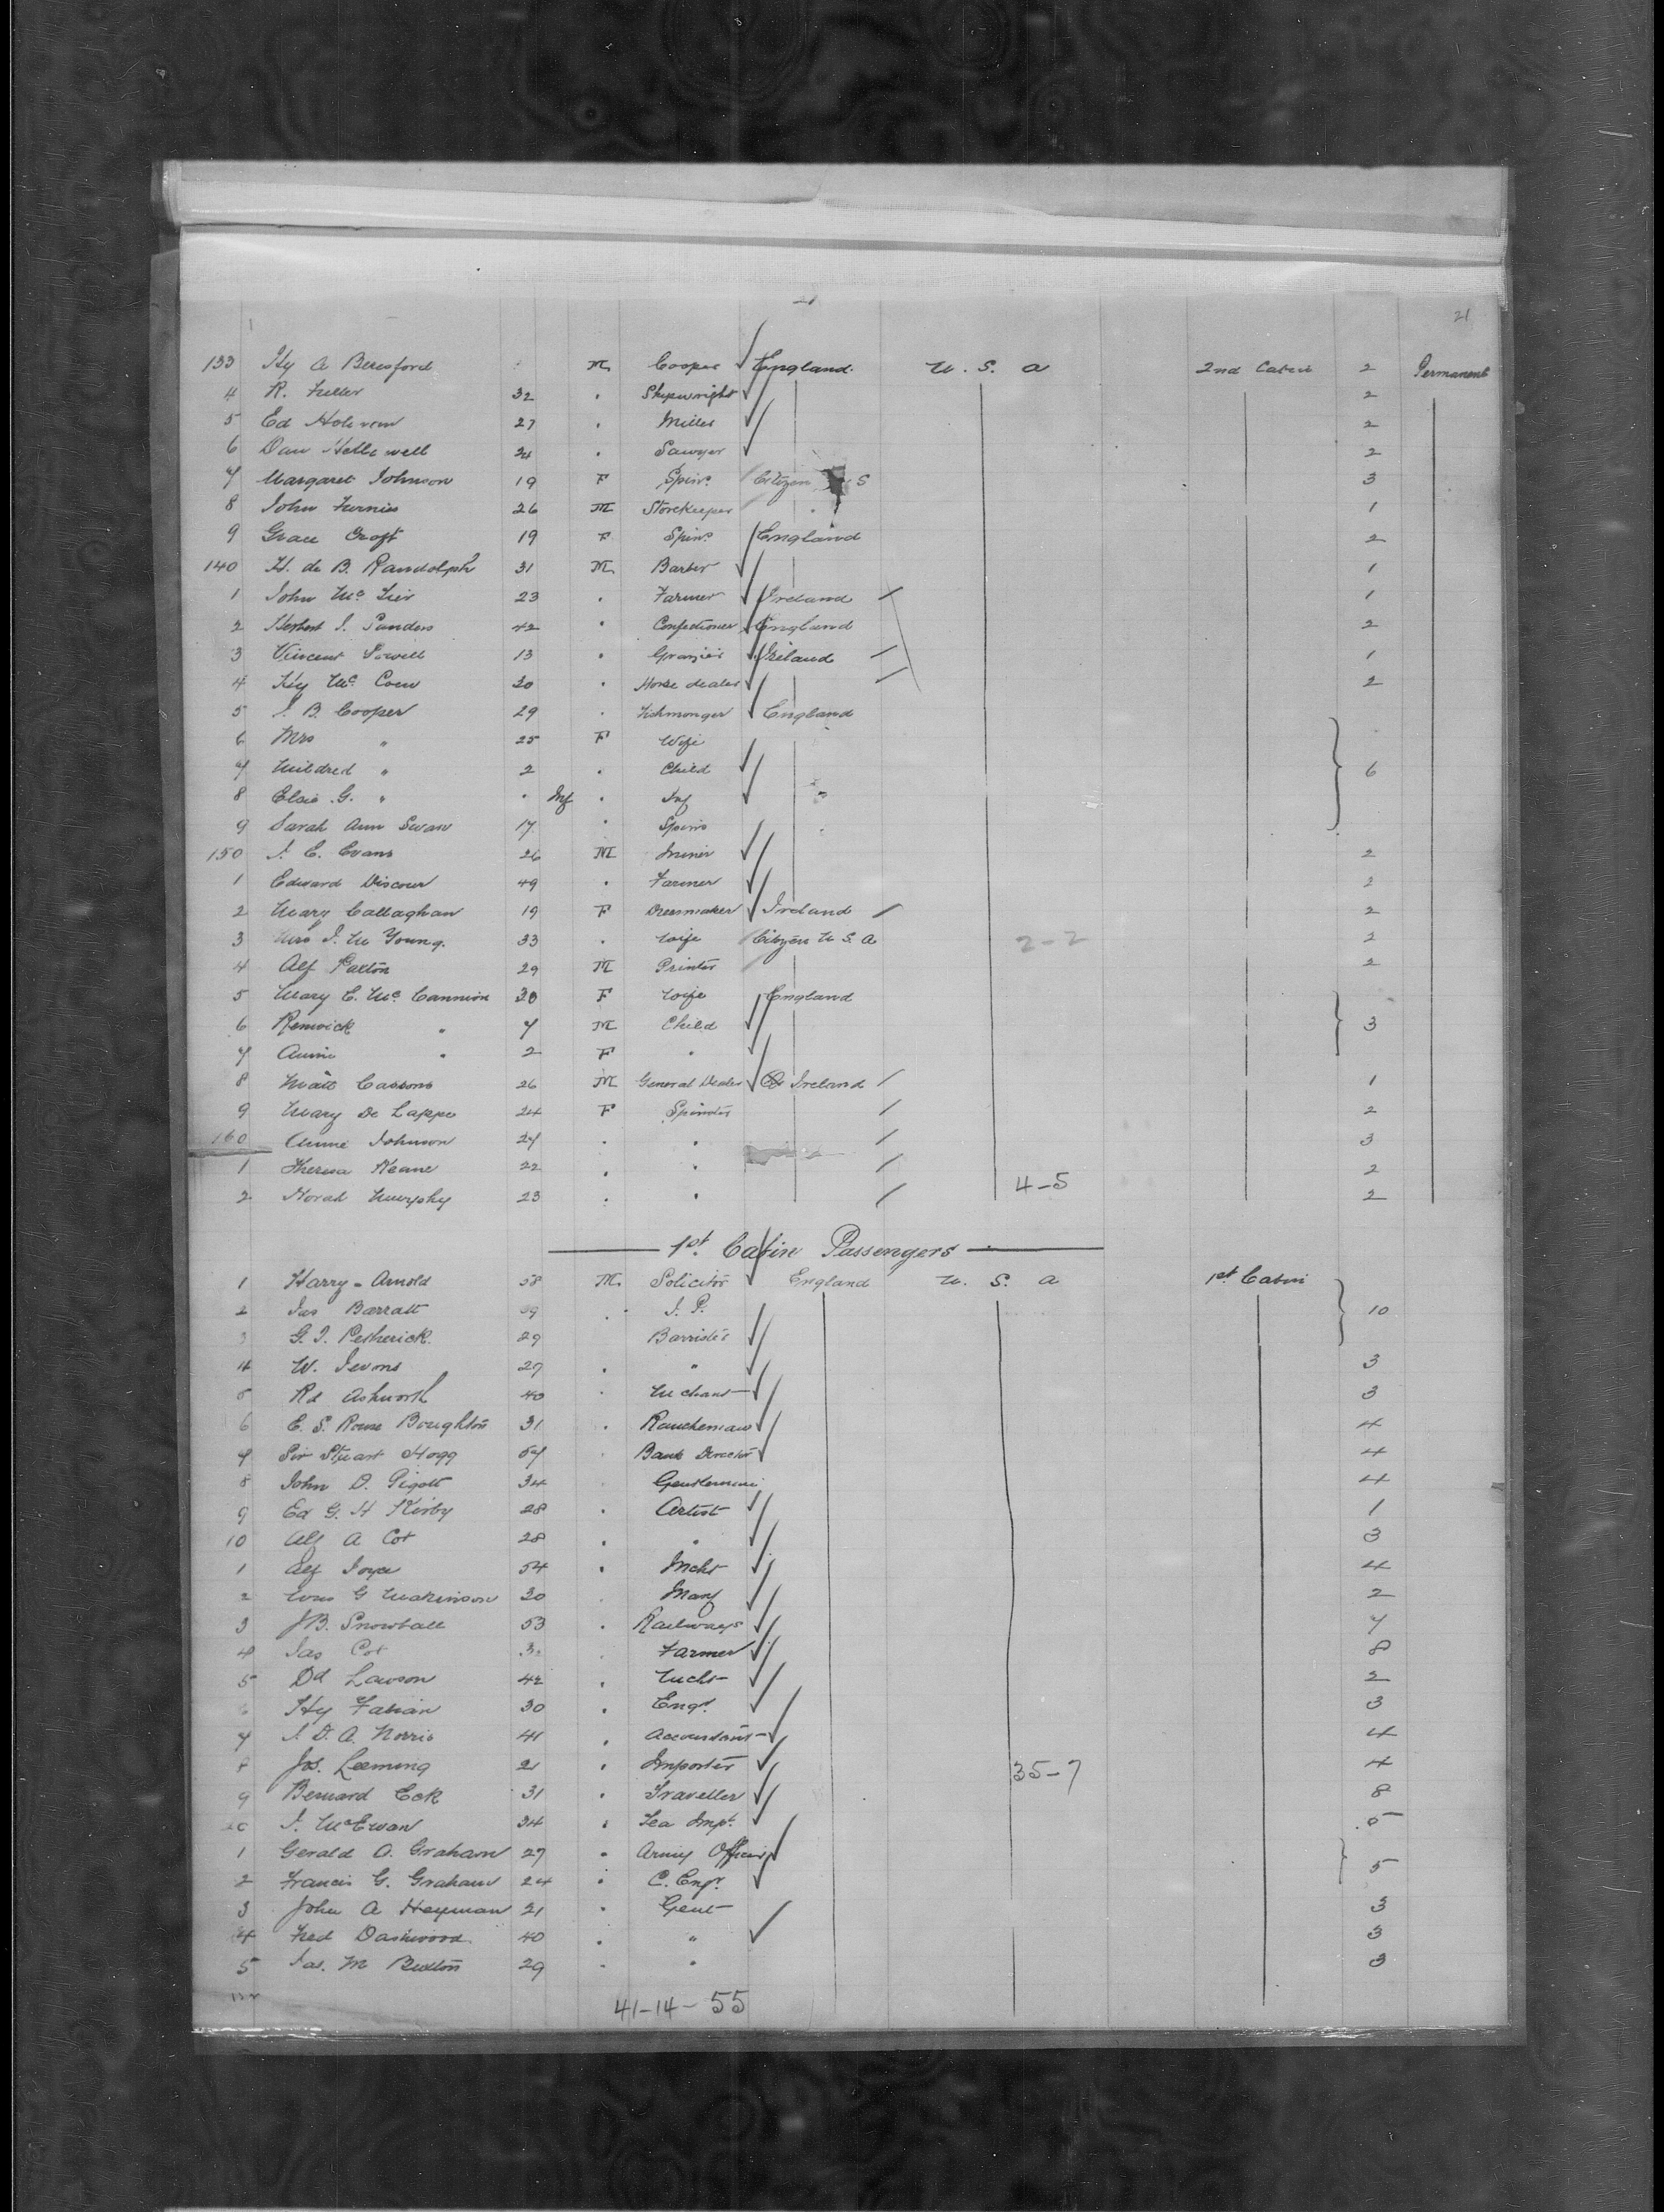 21
133 Hy A Beresford M Cooper England. U. S. A 2nd Cabin 2 Permanent
4 R. Fuller 32 " Shipwright 2
5 Ed 27 " Miller 2
6 Dan Helliwell 24 " Sawyer 2
7 Margaret Johnson 19 F Spinr Citizen S 3
8 John Furniss 26 M Storekeeper 1
9 Grace Croft 19 F Spinr England 2
140 H. de B. Randolph 31 M Barber 1
1 John Mc 23 " Farmer Ireland 1
2 Herbert J. Sanders 42 " Confectioner England 2
3 Vincent 13 " Grazier Ireland 1
4 Hy Mc 30 " Horse dealer 2
5 J. B. Cooper 29 " Fishmonger England
6 Mrs " 25 F Wife
7 Mildred " 2 " Child 6
8 Elsie G. " Inf " Inf
9 Sarah Ann Swan 17 " Spinr
150 J. E. Evans 26 M Miner 2
1 Edward 49 " Farmer 2
2 Mary Callaghan 19 F Dressmaker Ireland 2
3 Mrs J. M Young. 33 " Wife Citizen U S. A 2-2 2
4 Alf Paxton 29 M Printer 2
5 Mary E. Mc Cannion 30 F Wife England
6 Renwick " 7 M Child 3
7 Annie " 2 F "
8 Matt Cassons 26 M General Dealer Ireland 1
9 Mary De Lappe 24 F Spinster 2
160 Annie Johnson 27 " " 3
1 Theresa Keane 22 " " 2
2 Norah Murphy 23 " " 4-5 2
1st. Cabin Passengers
1 Harry Arnold 58 M. Solicitor England U. S. A 1st Cabin
2 Jas Barratt 39 " J. P. 10
3 G. J. Petherick. 29 Barrister
4 W. Jevons 27 " " 3
5 Rd Ashworth 40 " Mchant 3
6 E. S. Rouse Boughton 31 " Rancheman 4
7 Sir Stuart Hogg 57 " Bank Director 4
8 John D. Pigott 34 " Gentleman 4
9 Ed G. H Kirby 28 " Artist 1
10 Alf A Cox 28 " " 3
1 Alf Joyce 54 " Mcht 4
2 G Makinson 30 " Manf 2
3 J B. Snowball 53 " Railways 7
4 Jas Cox " Farmer 8
5 Dd Lawson 42 " Mcht 2
6 Hy Fabian 30 " Engr. 3
7 J. D. A. Norris 41 " Accountant 4
8 Jos. Leeming 21 " Importer 35-7 4
9 Bernard Eck 31 " Traveller 8
20 J. McEwan 34 " Tea Impt. 5
1 Gerald O. Graham 27 " Army Officer
2 Francis G. Graham 24 " C. Engr. 5
3 John A Heyman 21 " Gent 3
4 Fred Dashwood. 40 " " 3
5 Jas. M Buxton 29 " " 3
41-14-55